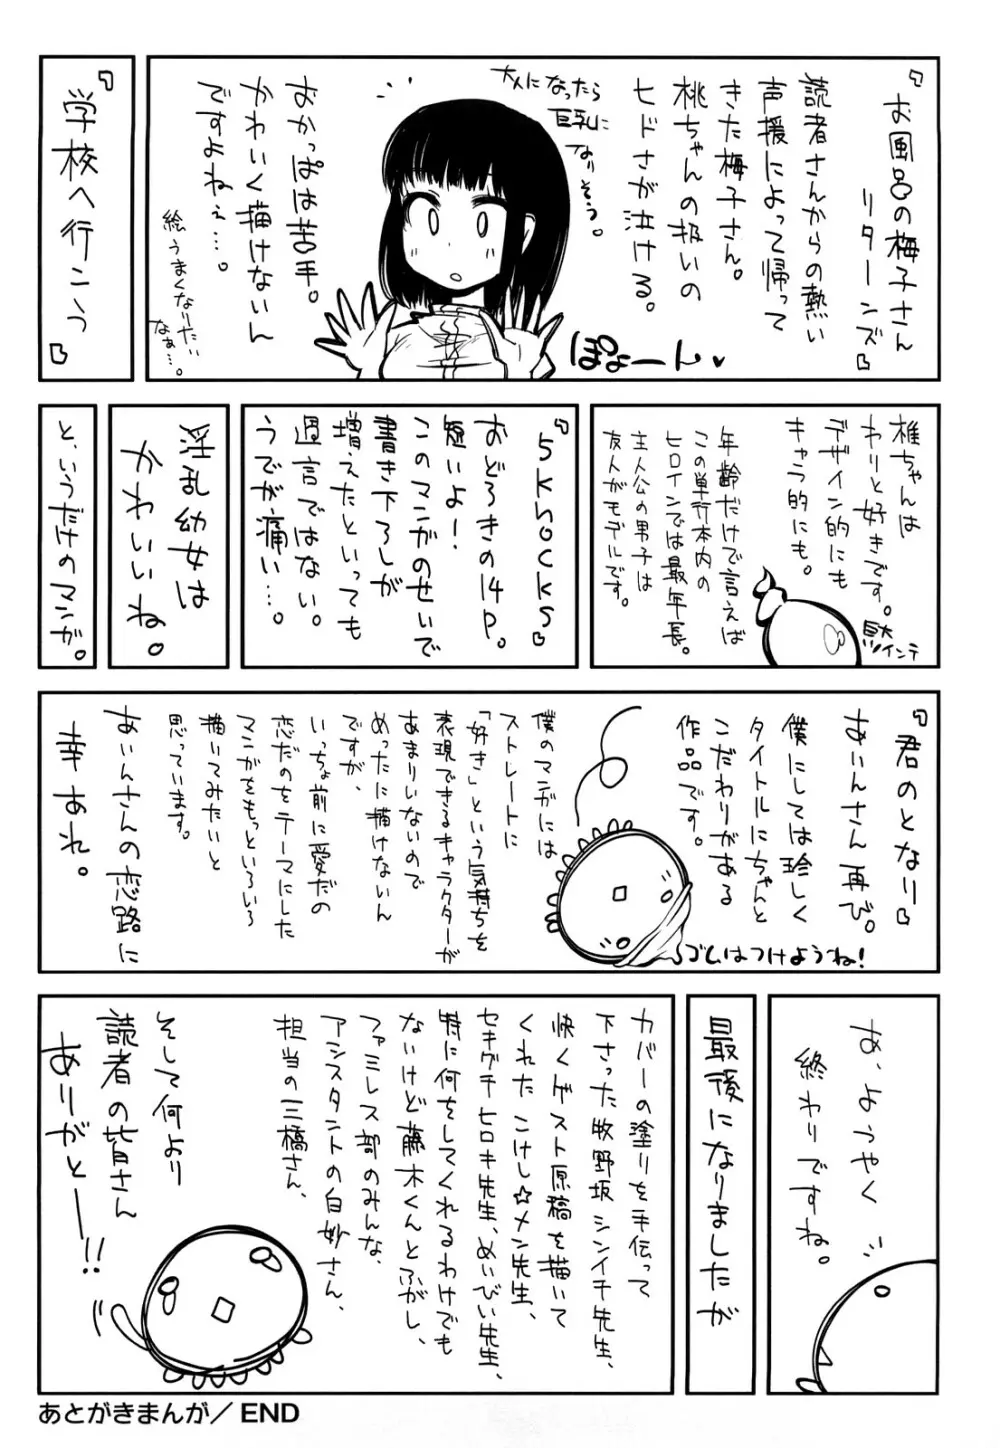 『お風呂の梅子さん
リターンズ』
読者さんからの熱い
声援によって帰って
きた梅子さん。
桃ちゃんの扱いの
ヒドさが泣ける。
おかっぱは苦手。
かわいく描けないん
ですよねぇ…。
絵うまくなりたい
なぁ…。
ぽよーん
『学校へ行こう』
椎ちゃんは
わりと好きです。
デザイン的にも
キャラ的にも。
年齢だけで言えば
この単行本内の
ヒロインでは最年長。
主人公の男子は
友人がモデルです。
『5knocks』
おどろきの14P。
短いよ！
このマンガのせいで
書き下ろしが
増えたといっても
過言ではない。
うでが痛い…。
と、いうだけのマンガ。
『君のとなり』
あいんさん再び。
僕にしては珍しく
タイトルにちゃんと
こだわりがある
作品です。
ゴムはつけようね！
僕のマンガには
ストレートに
「好き」という気持ちを
表現できるキャラクターが
あまりいないので
めったに描けないん
ですが、
いっちょ前に愛だの
恋だのをテーマにした
マンガをもっといろいろ
描いてみたいと
思っています。
あいんさんの恋路に
幸あれ。
あ、ようやく
終わりですね。
最後になりましたが
カバーの塗りを手伝って
下さった牧野坂シンイチ先生、
快くゲスト原稿を描いて
くれたこけし☆メン先生、
セキグチヒロキ先生、めいびい先生、
特に何をしてくれるわけでも
ないけど藤木くんとふがし、
ファミレス部のみんな、
アシスタントの白妙さん、
担当の三橋さん、
そして何より
読者の皆さん
ありがとーー!!
あとがきまんが／END